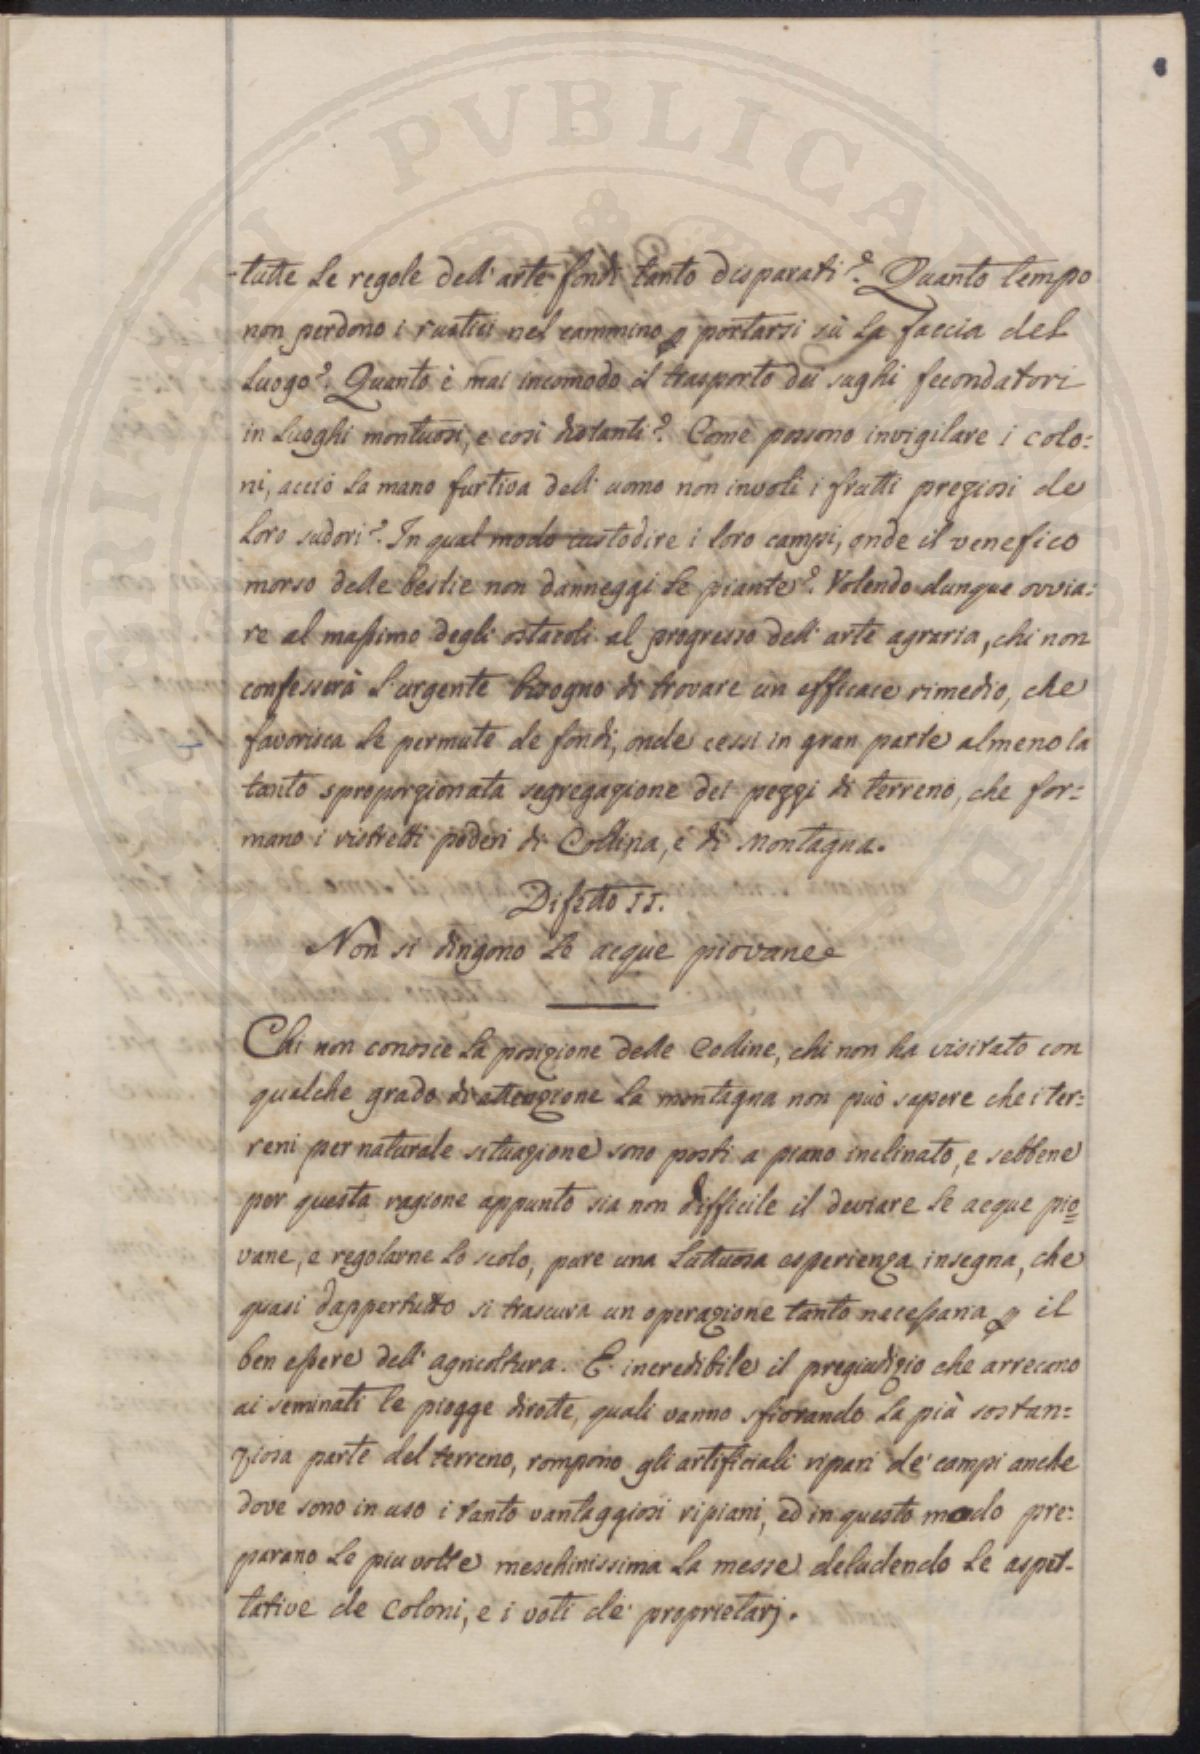 PVBLICAE
VTILITATI
PROSPERITATI
tutte le regole dell'arte fondi tanto disparati? Quanto tempo
non perdono i rustici nel cammino p portarsi sù la faccia del
luogo? Quanto è mai incomodo il trasporto dei sughi fecondatori
in luoghi montuosi, e così distanti? Come possono invigilare i colo:
ni, acciò la mano furtiva dell'uomo non involi i frutti preziosi de
loro sudori? In qual modo custodire i loro campi, onde il venefico
morso delle bestie non danneggi le piante? Volendo dunque ovvia:
re al massimo degli ostacoli al progresso dell'arte agraria, chi non
confesserà l'urgente bisogno di trovare un efficace rimedio, che
favorisca le permute de fondi, onde cessi in gran parte almeno la
tanto sproporzionata segregazione dei pezzi di terreno, che for:
mano i ristretti poderi di Collina, e di Montagna.
Difetto II.
Non si dirigono le acque piovane
Chi non conosce la posizione delle Colline, chi non ha visitato con
qualche grado di attenzione la montagna non può sapere che i ter:
reni per naturale situazione sono posti a piano inclinato, e sebbene
per questa ragione appunto sia non difficile il deviare le acque pio
vane, e regolarne lo scolo, pure una luttuosa esperienza insegna, che
quasi dappertutto si trascura un operazione tanto necessaria p il
ben essere dell'agricoltura. E incredibile il pregiudizio che arrecano
ai seminati le piogge dirotte, quali vanno sfiorando la più sostan:
ziosa parte del terreno, rompono gli artificiali ripari de' campi anche
dove sono in uso i tanto vantaggiosi ripiani, ed in questo modo pre:
parano le piu volte meschinissima la messe deludendo le aspet-
tative de Coloni, e i voti de' proprietarj.